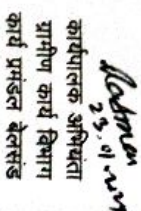 कार्यपालक अभियंता
ग्रामीण कार्य विभाग
कार्य प्रमंडल बेलसंड